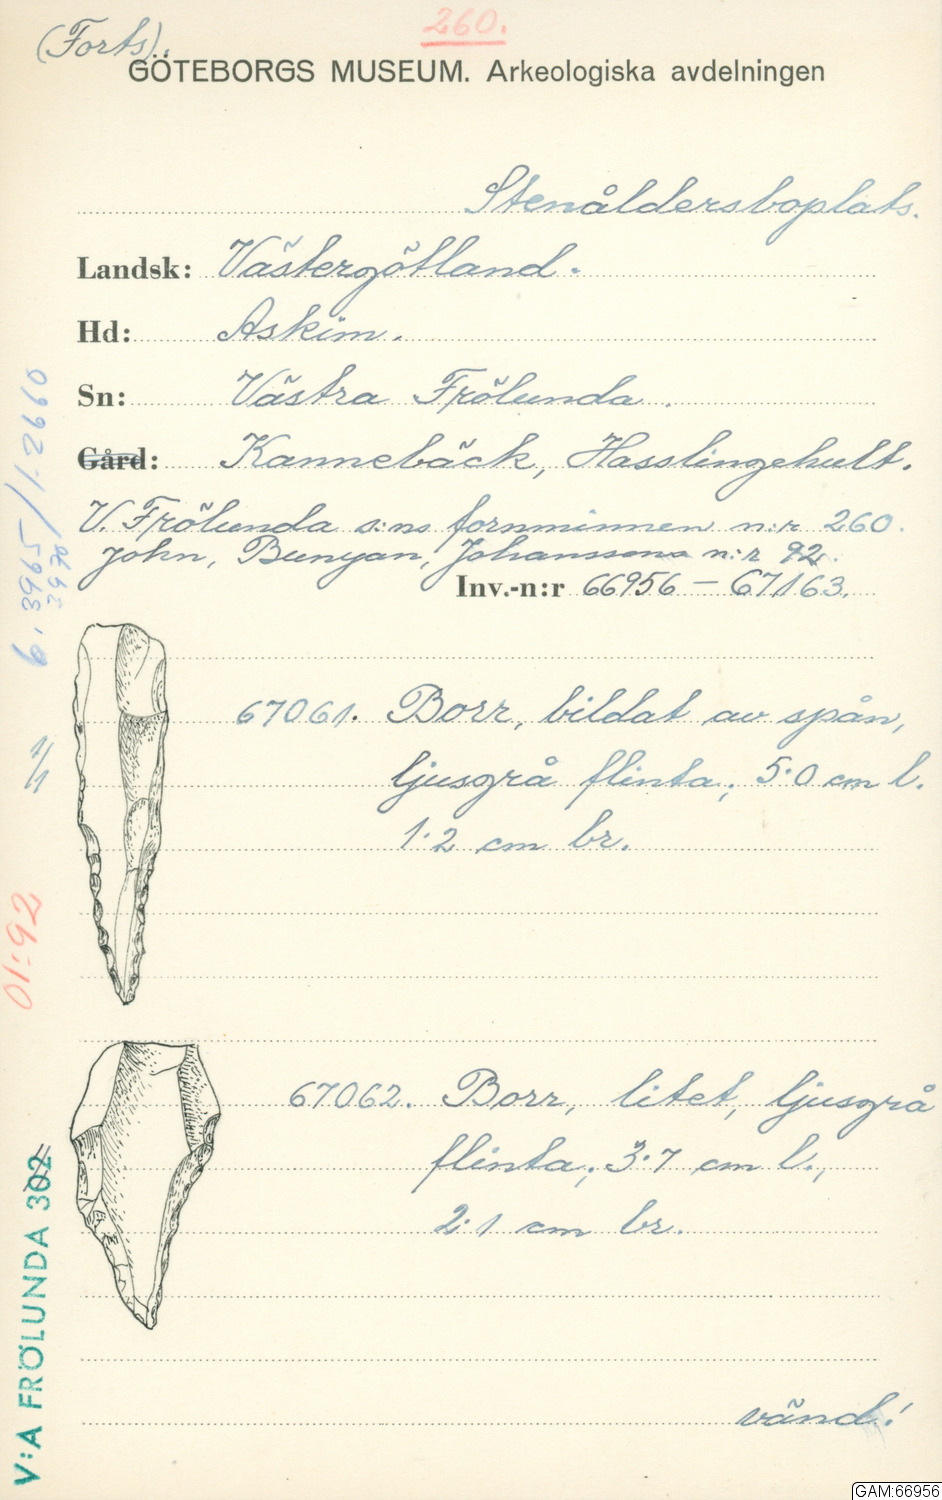 260.
(Forts).
GÖTEBORGS MUSEUM. Arkeologiska avdelningen
Stenåldersboplats.
Landsk: Västergötland.
Hd: Askim.
Sn: Västra Frölunda.
Gård: Kannebäck, Hasslingehult.
V. Frölunda s:ns fornminnen n:r 260.
John, Bunyan, Johanssons n:r 92.
Inv.-n:r 66956 – 67163.
67061. Borr, bildat av spån,
ljusgrå flinta; 5·0 cm l.
1·2 cm br.
67062. Borr, litet, ljusgrå
flinta; 3·7 cm l.,
2·1 cm br.
vänd!
6, 3965/1·2660
3970/
1/1
01:92
V:A FRÖLUNDA 302
GAM:66956